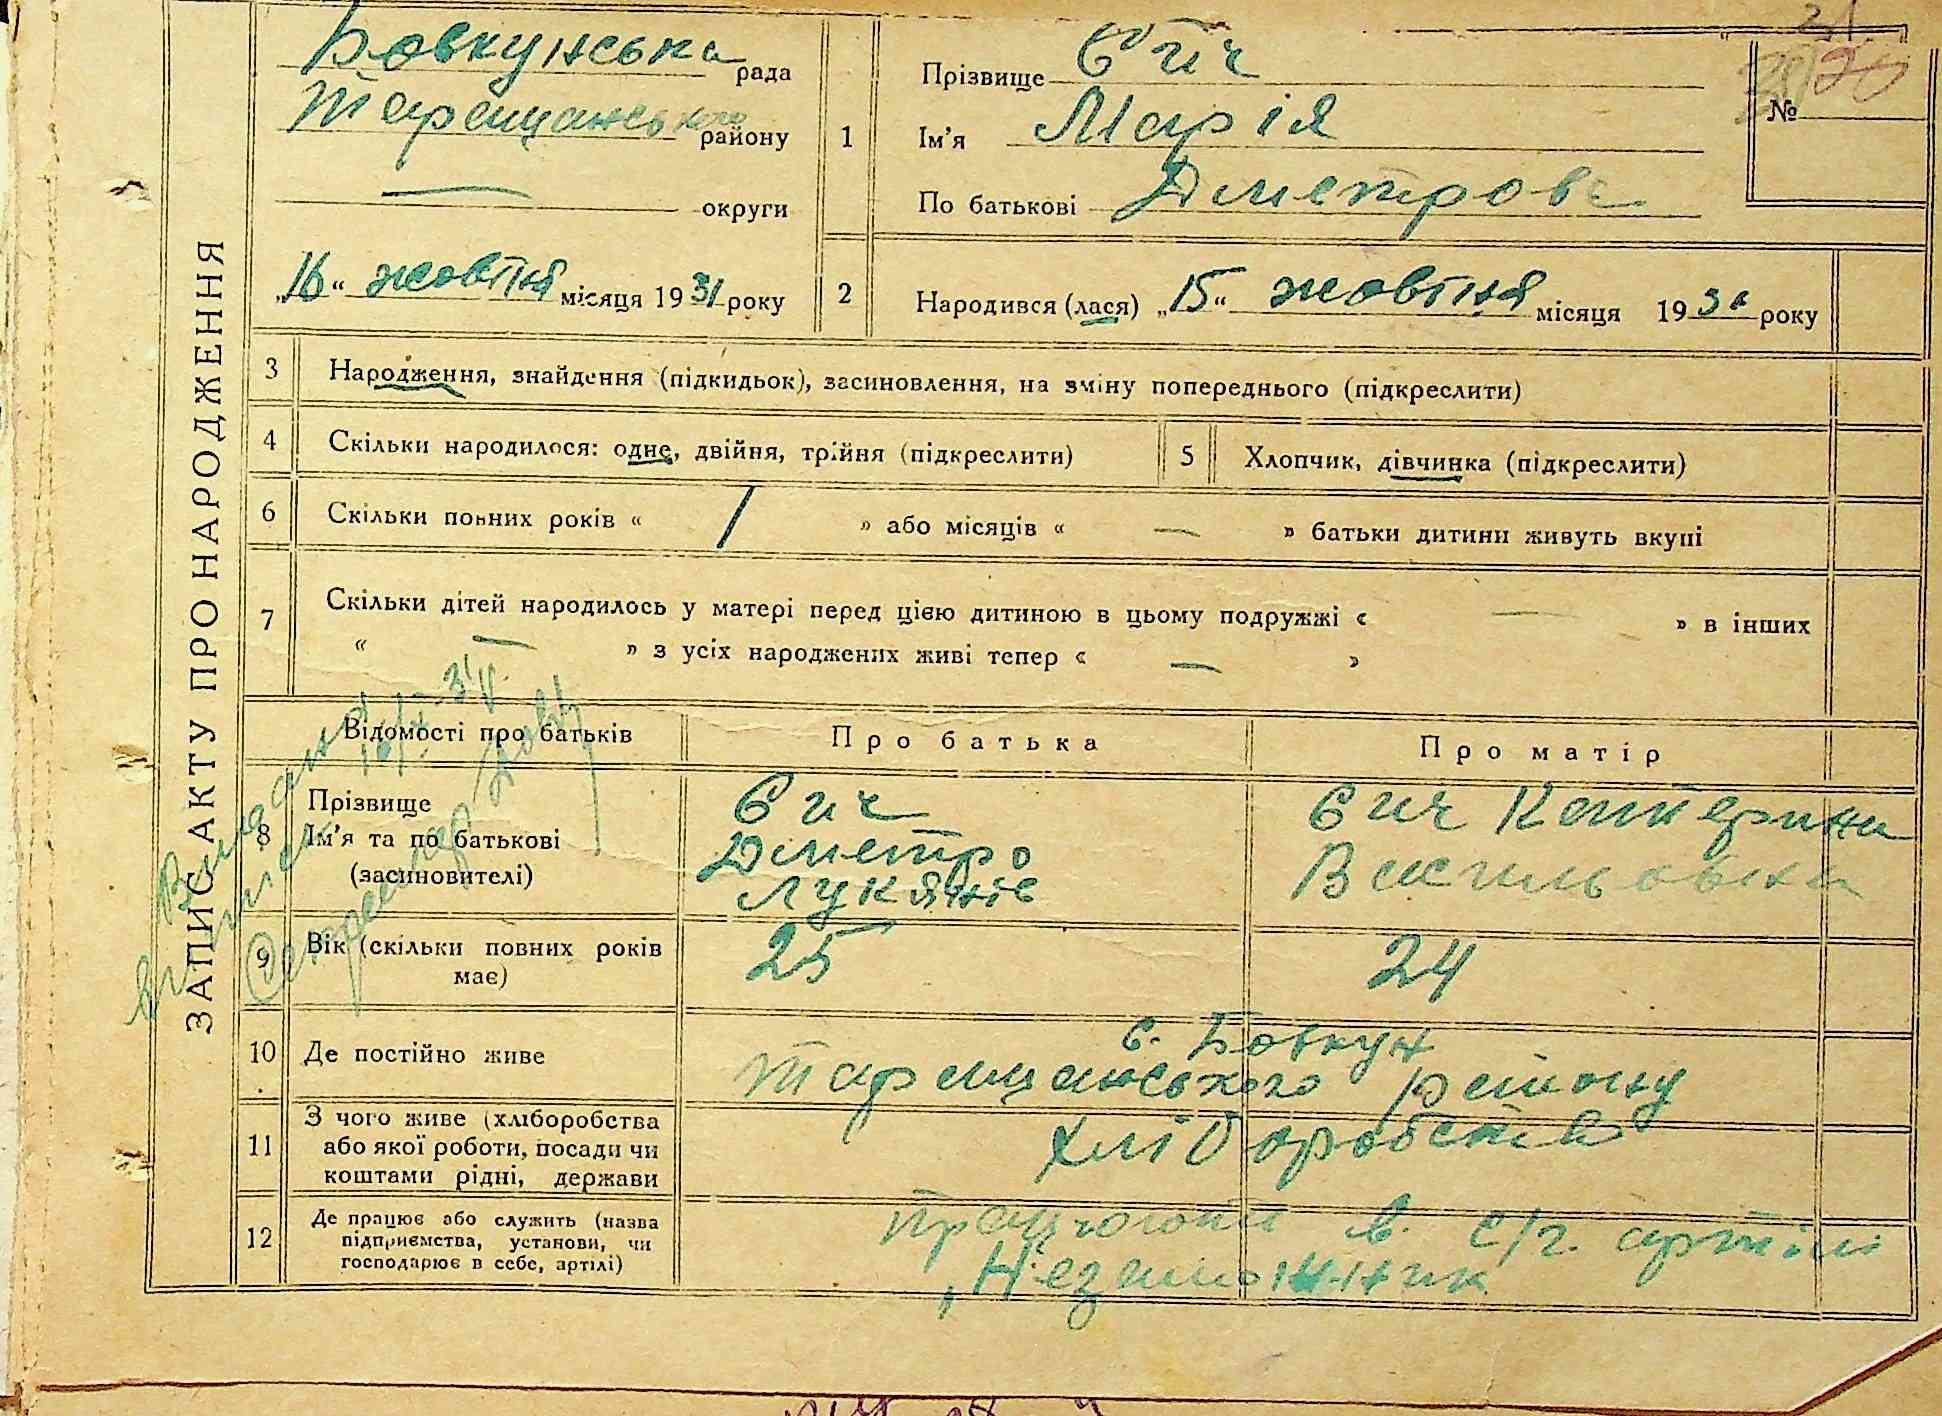 ЗАПИС АКТУ ПРО НАРОДЖЕННЯ
Бовкунська рада
Таращанського району
— округи
„16“ жовтня місяця 1931 року
1
Прізвище Єйч
Ім'я Марія
По батькові Дметрова
№
2
Народився (лася) „15“ жовтня місяця 1931 року
3
Народження, знайдення (підкидьок), засиновлення, на зміну попереднього (підкреслити)
4
Скільки народилося: одне, двійня, трійня (підкреслити)
5
Хлопчик, дівчинка (підкреслити)
6
Скільки повних років « 1 » або місяців « — » батьки дитини живуть вкупі
7
Скільки дітей народилось у матері перед цією дитиною в цьому подружжі « — » в інших
« — » з усіх народжених живі тепер « — »
Відомості про батьків
Про батька
Про матір
8
Прізвище
Ім'я та по батькові
(засиновителі)
Єич
Дметро
Лукянів
Єич Катерина
Васильовна
9
Вік (скільки повних років
має)
25
24
10
Де постійно живе
с. Бовкун
Таращанського району
11
З чого живе (хліборобства
або якої роботи, посади чи
коштами рідні, держави
хліборобства
12
Де працює або служить (назва
підприємства, установи, чи
господарює в себе, артілі)
працюють в с/г. артілі
„Незаможник